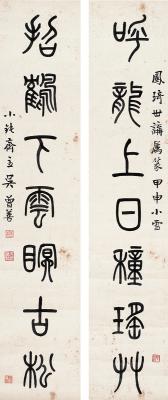 呼龍上日種瑤艸
鳳琦世講屬篆 甲申小雪
招鶴下雲眠古松
小鈍齋主吳曾善